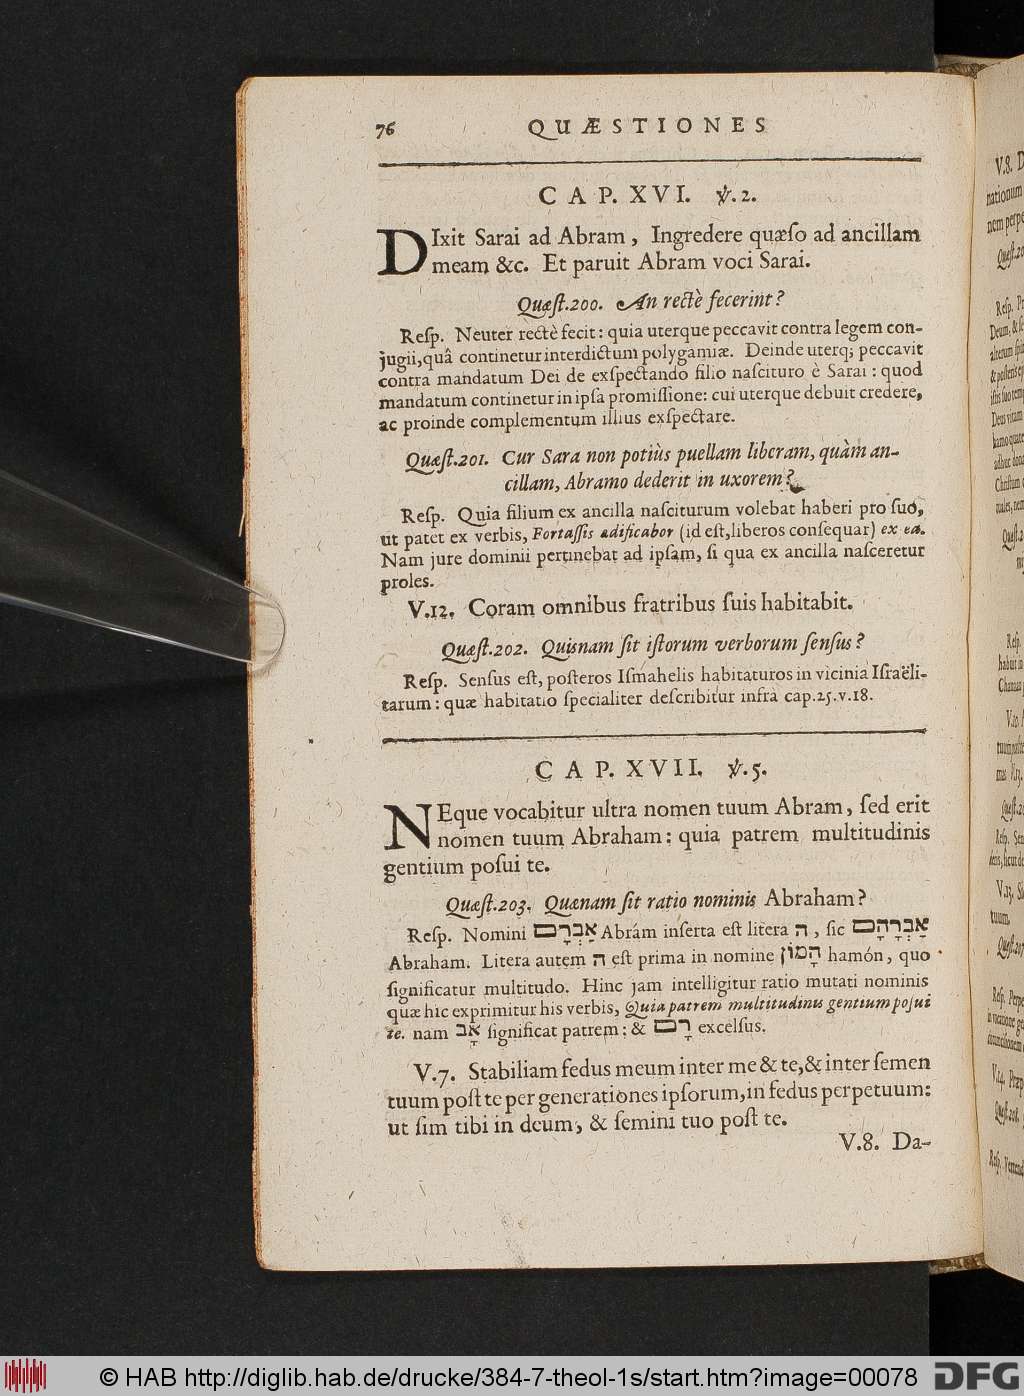 76 QUÆSTIONES
CAP. XVI. ℣.2.
DIxit Sarai ad Abram, Ingredere quæſo ad ancillam
meam &c. Et paruit Abram voci Sarai.
Quæſt.200. An rectè fecerint?
Reſp. Neuter rectè fecit: quia uterque peccavit contra legem con-
jugii, quâ continetur interdictum polygamiæ. Deinde uterq; peccavit
contra mandatum Dei de exſpectando filio naſcituro è Sarai: quod
mandatum continetur in ipſa promiſſione: cui uterque debuit credere,
ac proinde complementum illius exſpectare.
Quæſt.201. Cur Sara non potiùs puellam liberam, quàm an-
cillam, Abramo dederit in uxorem?
Reſp. Quia filium ex ancilla naſciturum volebat haberi pro ſuo,
ut patet ex verbis, Fortaſſis ædificabor (id eſt, liberos conſequar) ex ea.
Nam jure dominii pertinebat ad ipſam, ſi qua ex ancilla naſceretur
proles.
V.12. Coram omnibus fratribus ſuis habitabit.
Quæſt.202. Quisnam ſit iſtorum verborum ſenſus?
Reſp. Senſus eſt, poſteros Iſmahelis habitaturos in vicinia Iſraëli-
tarum: quæ habitatio ſpecialiter deſcribitur infrà cap.25.v.18.
CAP. XVII. ℣.5.
NEque vocabitur ultra nomen tuum Abram, ſed erit
nomen tuum Abraham: quia patrem multitudinis
gentium poſui te.
Quæſt.203. Quænam ſit ratio nominis Abraham?
Reſp. Nomini אַבְרָם Abrám inſerta eſt litera ה, ſic אַבְרָהָם
Abraham. Litera autem ה eſt prima in nomine הָמוֹן hamón, quo
ſignificatur multitudo. Hinc jam intelligitur ratio mutati nominis
quæ hic exprimitur his verbis, Quia patrem multitudinis gentium poſui
te. nam אָב ſignificat patrem: & רָם excelſus.
V.7. Stabiliam fedus meum inter me & te, & inter ſemen
tuum poſt te per generationes ipſorum, in fedus perpetuum:
ut ſim tibi in deum, & ſemini tuo poſt te.
V.8. Da-
© HAB http://diglib.hab.de/drucke/384-7-theol-1s/start.htm?image=00078
DFG